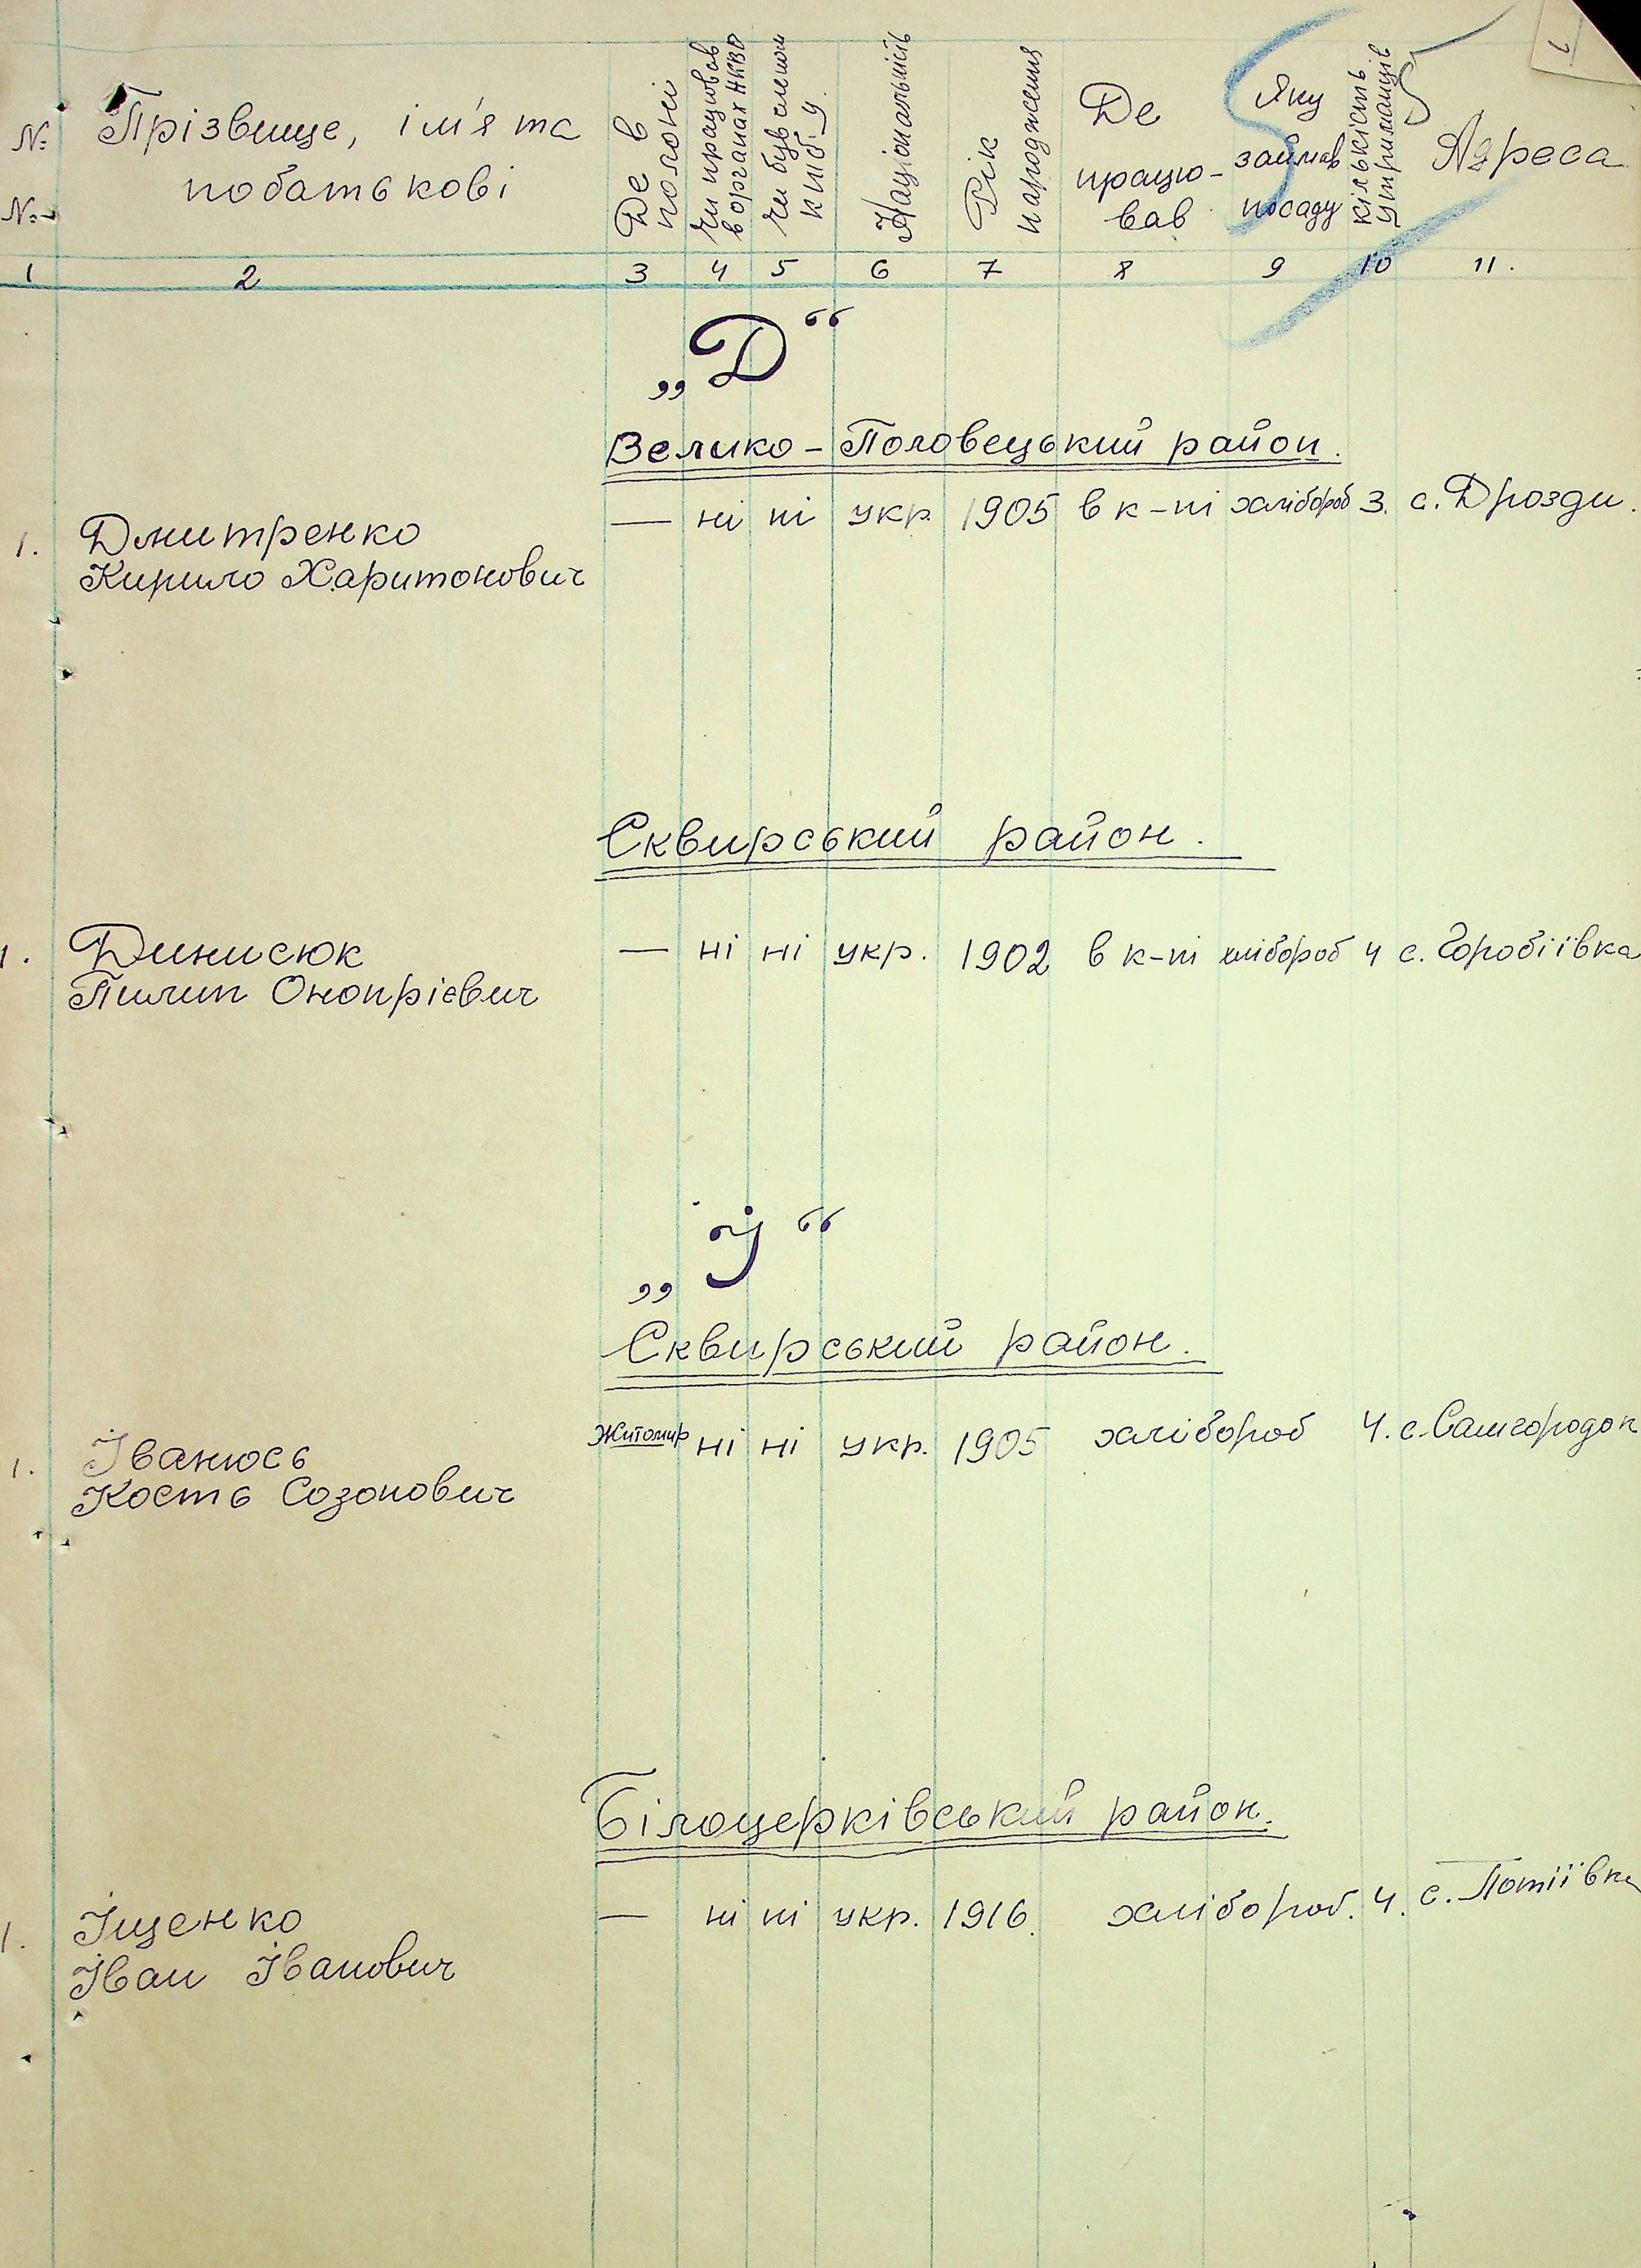 № №
Прізвище, ім'я та
побатькові
Де в
полоні
Чи працював
в органах НКВД
Чи був членом
КП(б)У
Національність
Рік
народження
Де
працю-
вав
Яку
займав
посаду
Кількість
утриманців
Адреса
1 2 3 4 5 6 7 8 9 10 11.
„Д“
Велико-Половецький район.
1. Дмитренко — ні ні укр. 1905 в к-пі хлібороб 3. с. Дрозди.
Кирило Харитонович
Сквирський район.
1. Динисюк — ні ні укр. 1902 в к-пі хлібороб 4 с. Горобіївка
Пилип Онопрієвич
„І“
Сквирський район.
1. Іванюсь Житомир ні ні укр. 1905 хлібороб 4. с. Самгородок
Кость Созонович
Білоцерківський район.
1. Іщенко — ні ні укр. 1916. хлібороб. 4. с. Потіївка
Іван Іванович